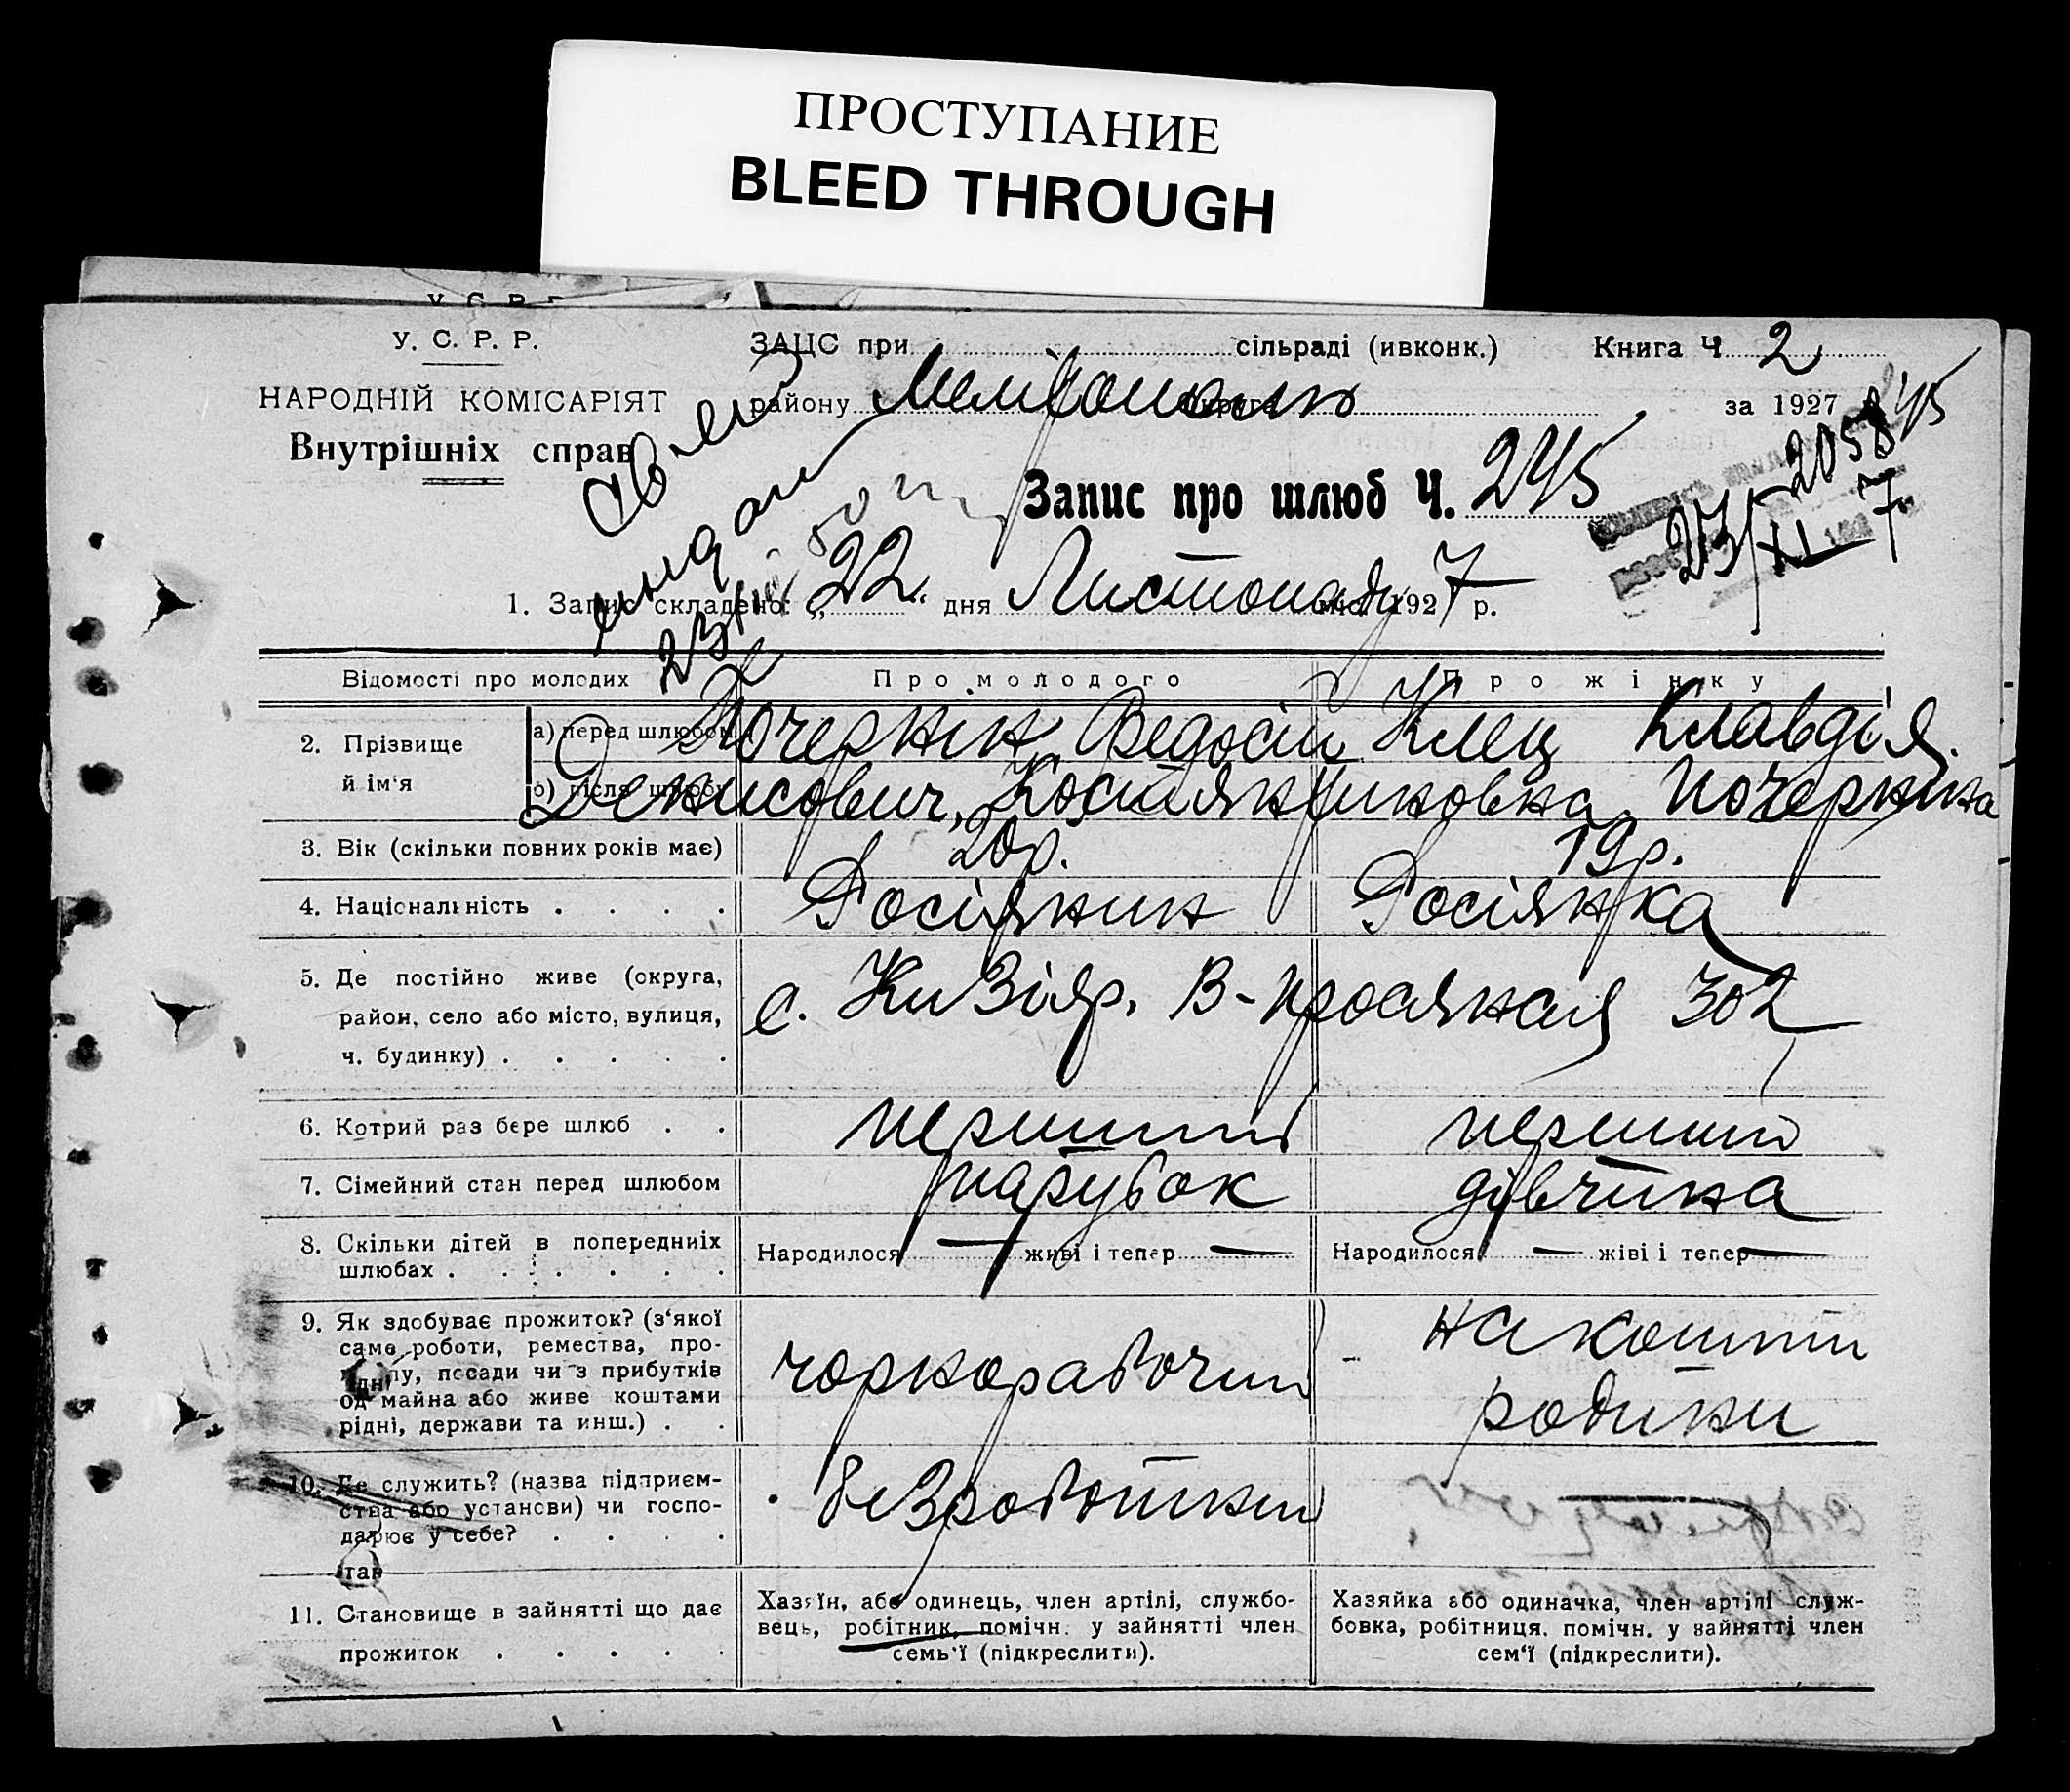 ПРОСТУПАНИЕ
BLEED THROUGH
У. С. Р. Р.
У. С. Р. Р.
НАРОДНІЙ КОМІСАРІЯТ
Внутрішніх справ
ЗАЦС при сільраді (ивконк.)
району округи
Книга Ч 2
за 1927
2058 245
23/XI 7
Запис про шлюб Ч. 245
23/XI
1. Запис складено: „22“ дня Листопаду міс. 1927 р.
Відомості про молодих Про молодого Про жінку
2. Прізвище й ім'я
а) перед шлюбом Почернін Федосій Клец Клавдія
б) після шлюбу Денисович, Костянтиновна Почерніна
3. Вік (скільки повних років має) 20р. 19р.
4. Національність . . . . Росіянин Росіянка
5. Де постійно живе (округа,
район, село або місто, вулиця,
ч. будинку) . . . . .
с. Кизіяр, В- 302
6. Котрий раз бере шлюб . . перший перший
7. Сімейний стан перед шлюбом парубок дівчина
8. Скільки дітей в попередниіх
шлюбах . . . . . . .
Народилося — живі і тепер — Народилося — жіві і тепер —
9. Як здобуває прожиток? (з'якої
саме роботи, ремества, про-
мислу, посади чи з прибутків
од майна або живе коштами
рідні, держави та инш.) . .
чорнорабочий на кошти
родини
10. Де служить? (назва підприєм-
ства або установи) чи госпо-
дарює у себе? . . . .
безроботний —
11. Становище в зайнятті що дає
прожиток . . . . .
Хазяїн, або одинець, член артілі, службо-
вець, робітник, помічн. у зайнятті член
семь'ї (підкреслити).
Хазяйка або одиначка, член артілі служ-
бовка, робітниця. помічн. у зайнятті член
сем'ї (підкреслити).